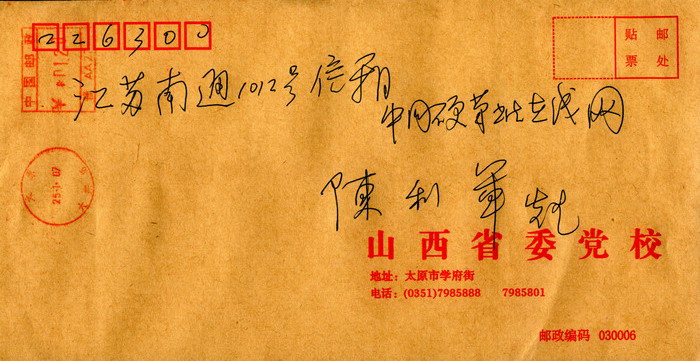 226300
中国邮政
贴 邮
票 处
江苏南通1012号信箱
中国硬笔书法在线网
陳利軍
山西省委党校
地址：太原市学府街
电话：(0351)7985888 7985801
邮政编码 030006